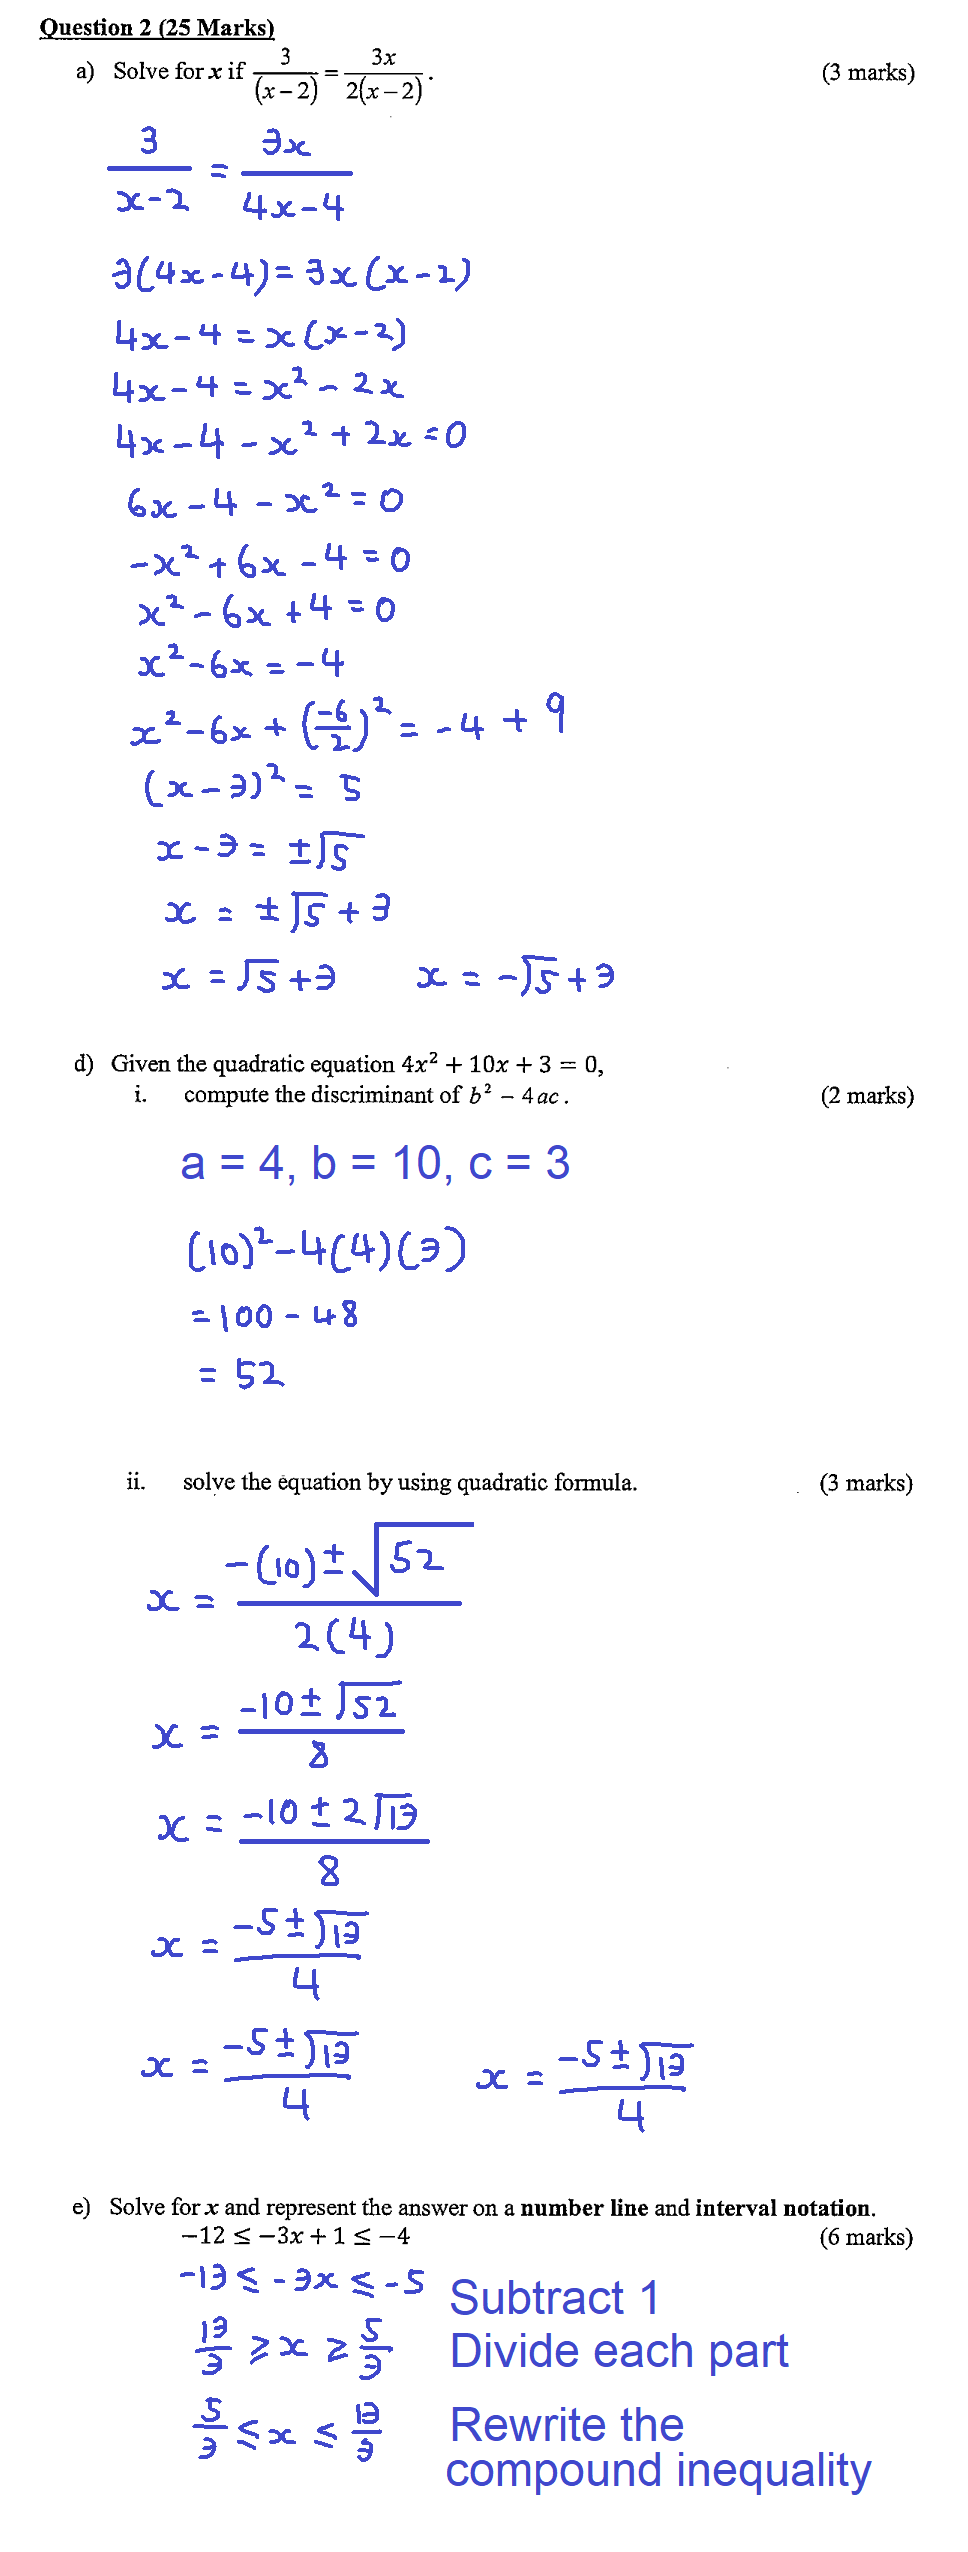 Question 2 (25 Marks)
a) Solve for x if 3/(x − 2) = 3x/2(x − 2). (3 marks)
3/x-2 = 3x/4x-4
3(4x-4) = 3x(x-2)
4x-4 = x(x-2)
4x-4 = x² - 2x
4x-4 - x² + 2x = 0
6x - 4 - x² = 0
-x² + 6x - 4 = 0
x² - 6x + 4 = 0
x² - 6x = -4
x² - 6x + (-6/2)² = -4 + 9
(x-3)² = 5
x - 3 = ±√5
x = ±√5 + 3
x = √5 + 3 x = -√5 + 3
d) Given the quadratic equation 4x² + 10x + 3 = 0,
i. compute the discriminant of b² − 4ac. (2 marks)
a = 4, b = 10, c = 3
(10)² - 4(4)(3)
= 100 - 48
= 52
ii. solve the equation by using quadratic formula. (3 marks)
x = -(10) ± √52 / 2(4)
x = -10 ± √52 / 8
x = -10 ± 2√13 / 8
x = -5 ± √13 / 4
x = -5 ± √13 / 4 x = -5 ± √13 / 4
e) Solve for x and represent the answer on a number line and interval notation.
−12 ≤ −3x + 1 ≤ −4 (6 marks)
-13 ≤ -3x ≤ -5 Subtract 1
13/3 ≥ x ≥ 5/3 Divide each part
5/3 ≤ x ≤ 13/3 Rewrite the
compound inequality